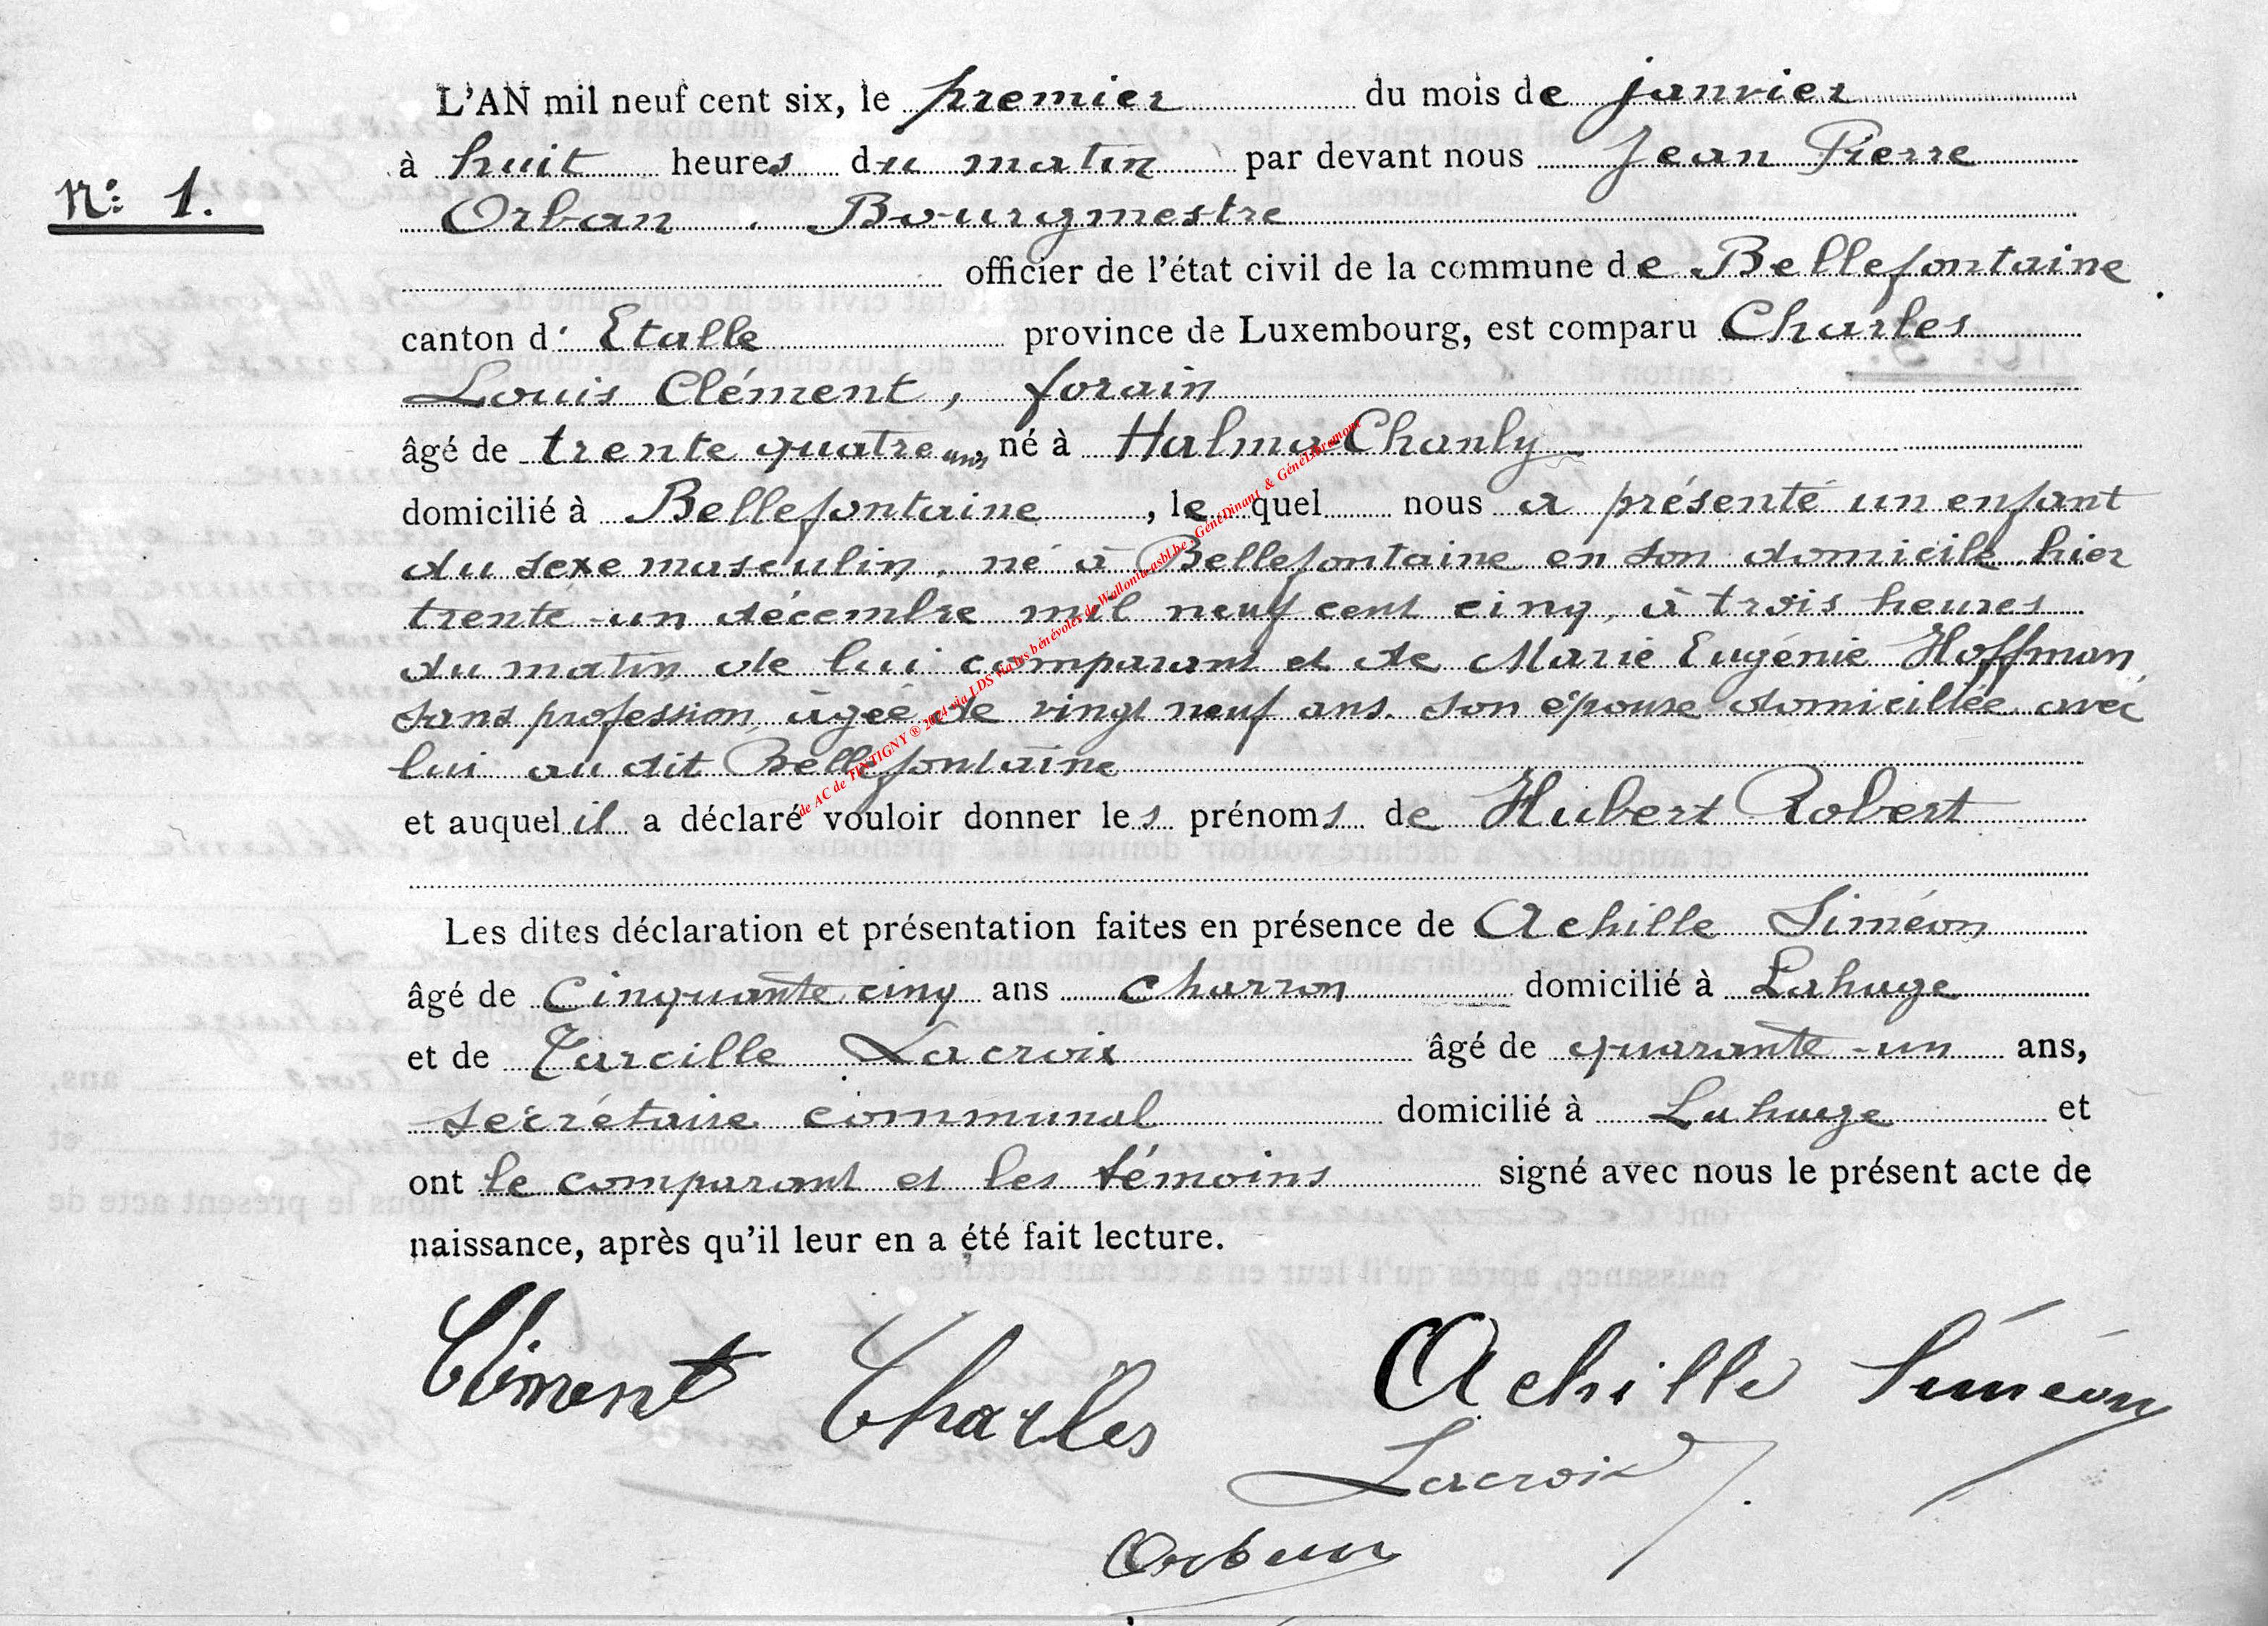 L'AN mil neuf cent six, le premier du mois de janvier
à huit heures du matin par devant nous Jean Pierre
N° 1.
Orban, Bourgmestre
officier de l'état civil de la commune de Bellefontaine
canton d'Etalle province de Luxembourg, est comparu Charles
Louis Clément, forain
âgé de trente quatre ans né à Halma-Chanly
domicilié à Bellefontaine, lequel nous a présenté un enfant
du sexe masculin, né à Bellefontaine en son domicile hier
trente-un décembre mil neuf cent cinq, à trois heures
du matin de lui comparant et de Marie Eugénie Hoffman
sans profession, âgée de vingt neuf ans. son épouse domiciliée avec
lui au dit Bellefontaine
et auquel il a déclaré vouloir donner les prénoms de Hubert Robert
Les dites déclaration et présentation faites en présence de Achille Siméon
âgé de cinquante cinq ans charron domicilié à Lahage
et de Tarcille Lacroix âgé de quarante-un ans,
secrétaire communal domicilié à Lahage et
ont le comparant et les témoins signé avec nous le présent acte de
naissance, après qu'il leur en a été fait lecture.
Clément Charles Achille Siméon
Lacroix
Orban
de AC de TINTIGNY ® 2024 via LDS via les bénévoles de Wallonia-asbl.be, GénéDinant & GénéLibramont